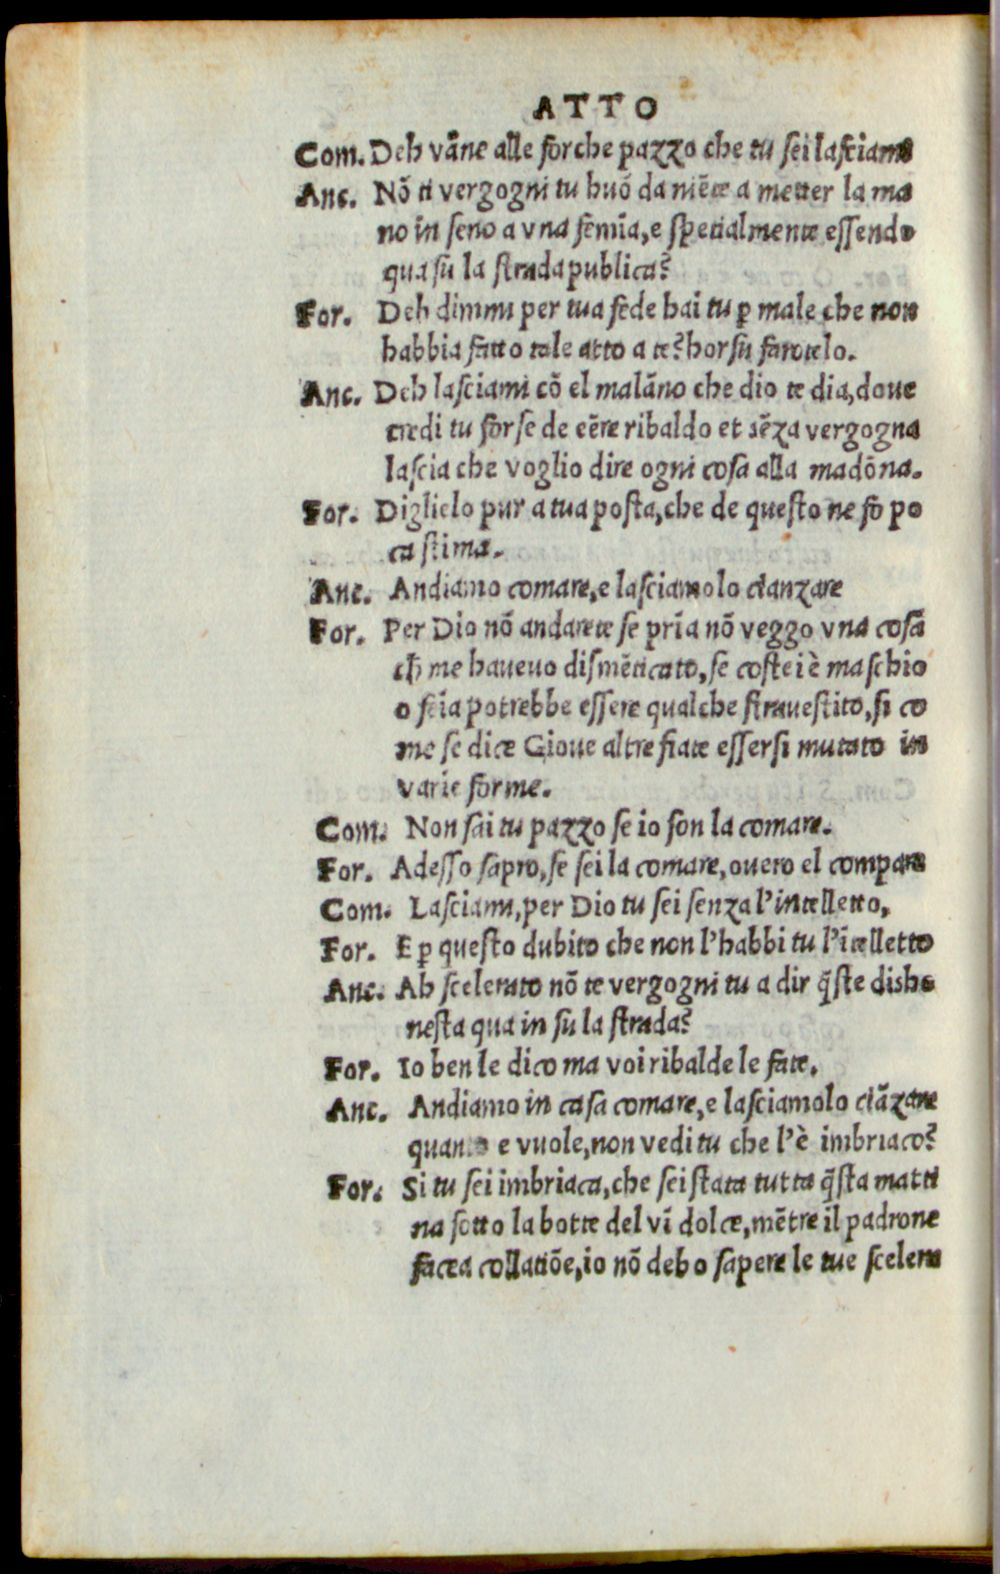 ATTO
Com. Deh vãne alle forche pazzo che tu sei lasciamo
Anc. Nõ ti vergogni tu huõ da niẽte a metter la ma
no in seno a vna femĩa, e spetialmente essendo
qua sù la strada publica?
For. Deh dimmi per tua fede hai tu ꝑ male che non
habbia fatto tale atto a te? horsu farotelo.
Anc. Deh lasciami cõ el malãno che dio te dia, doue
credi tu forse de eẽre ribaldo et sẽza vergogna
lascia che voglio dire ogni cosa alla madõna.
For. Diglielo pur a tua posta, che de questo ne fo po
ca stima.
Anc. Andiamo comare, e lasciamolo cianzare
For. Per Dio nõ andarete se prĩa nõ veggo vna cosã
ch̃ me haueuo dismẽticato, se costei è maschio
o fẽia potrebbe essere qualche strauestito, si co
me se dice Gioue altre fiate essersi mutato in
varie forme.
Com. Non sai tu pazzo se io son la comare.
For. Adesso sapro, se sei la comare, ouero el compare
Com. Lasciami, per Dio tu sei senza l'intelletto,
For. E ꝑ questo dubito che non l'habbi tu l'ĩtelletto
Anc. Ah scelerato nõ te vergogni tu a dir q̃ste disho
nesta qua in su la strada?
For. Io ben le dico ma voi ribalde le fate.
Anc. Andiamo in casa comare, e lasciamolo ciãzare
quanto e vuole, non vedi tu che l'è imbriaco?
For. Si tu sei imbriaca, che sei stata tutta q̃sta matti
na sotto la botte del vĩ dolce, mẽtre il padrone
facea collatiõe, io nõ debo sapere le tue scelera